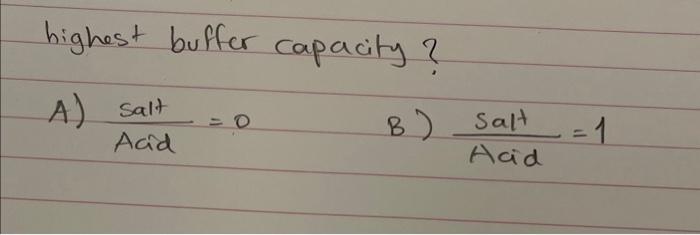 highest buffer capacity ?
A) Salt / Acid = 0
B) Salt / Acid = 1